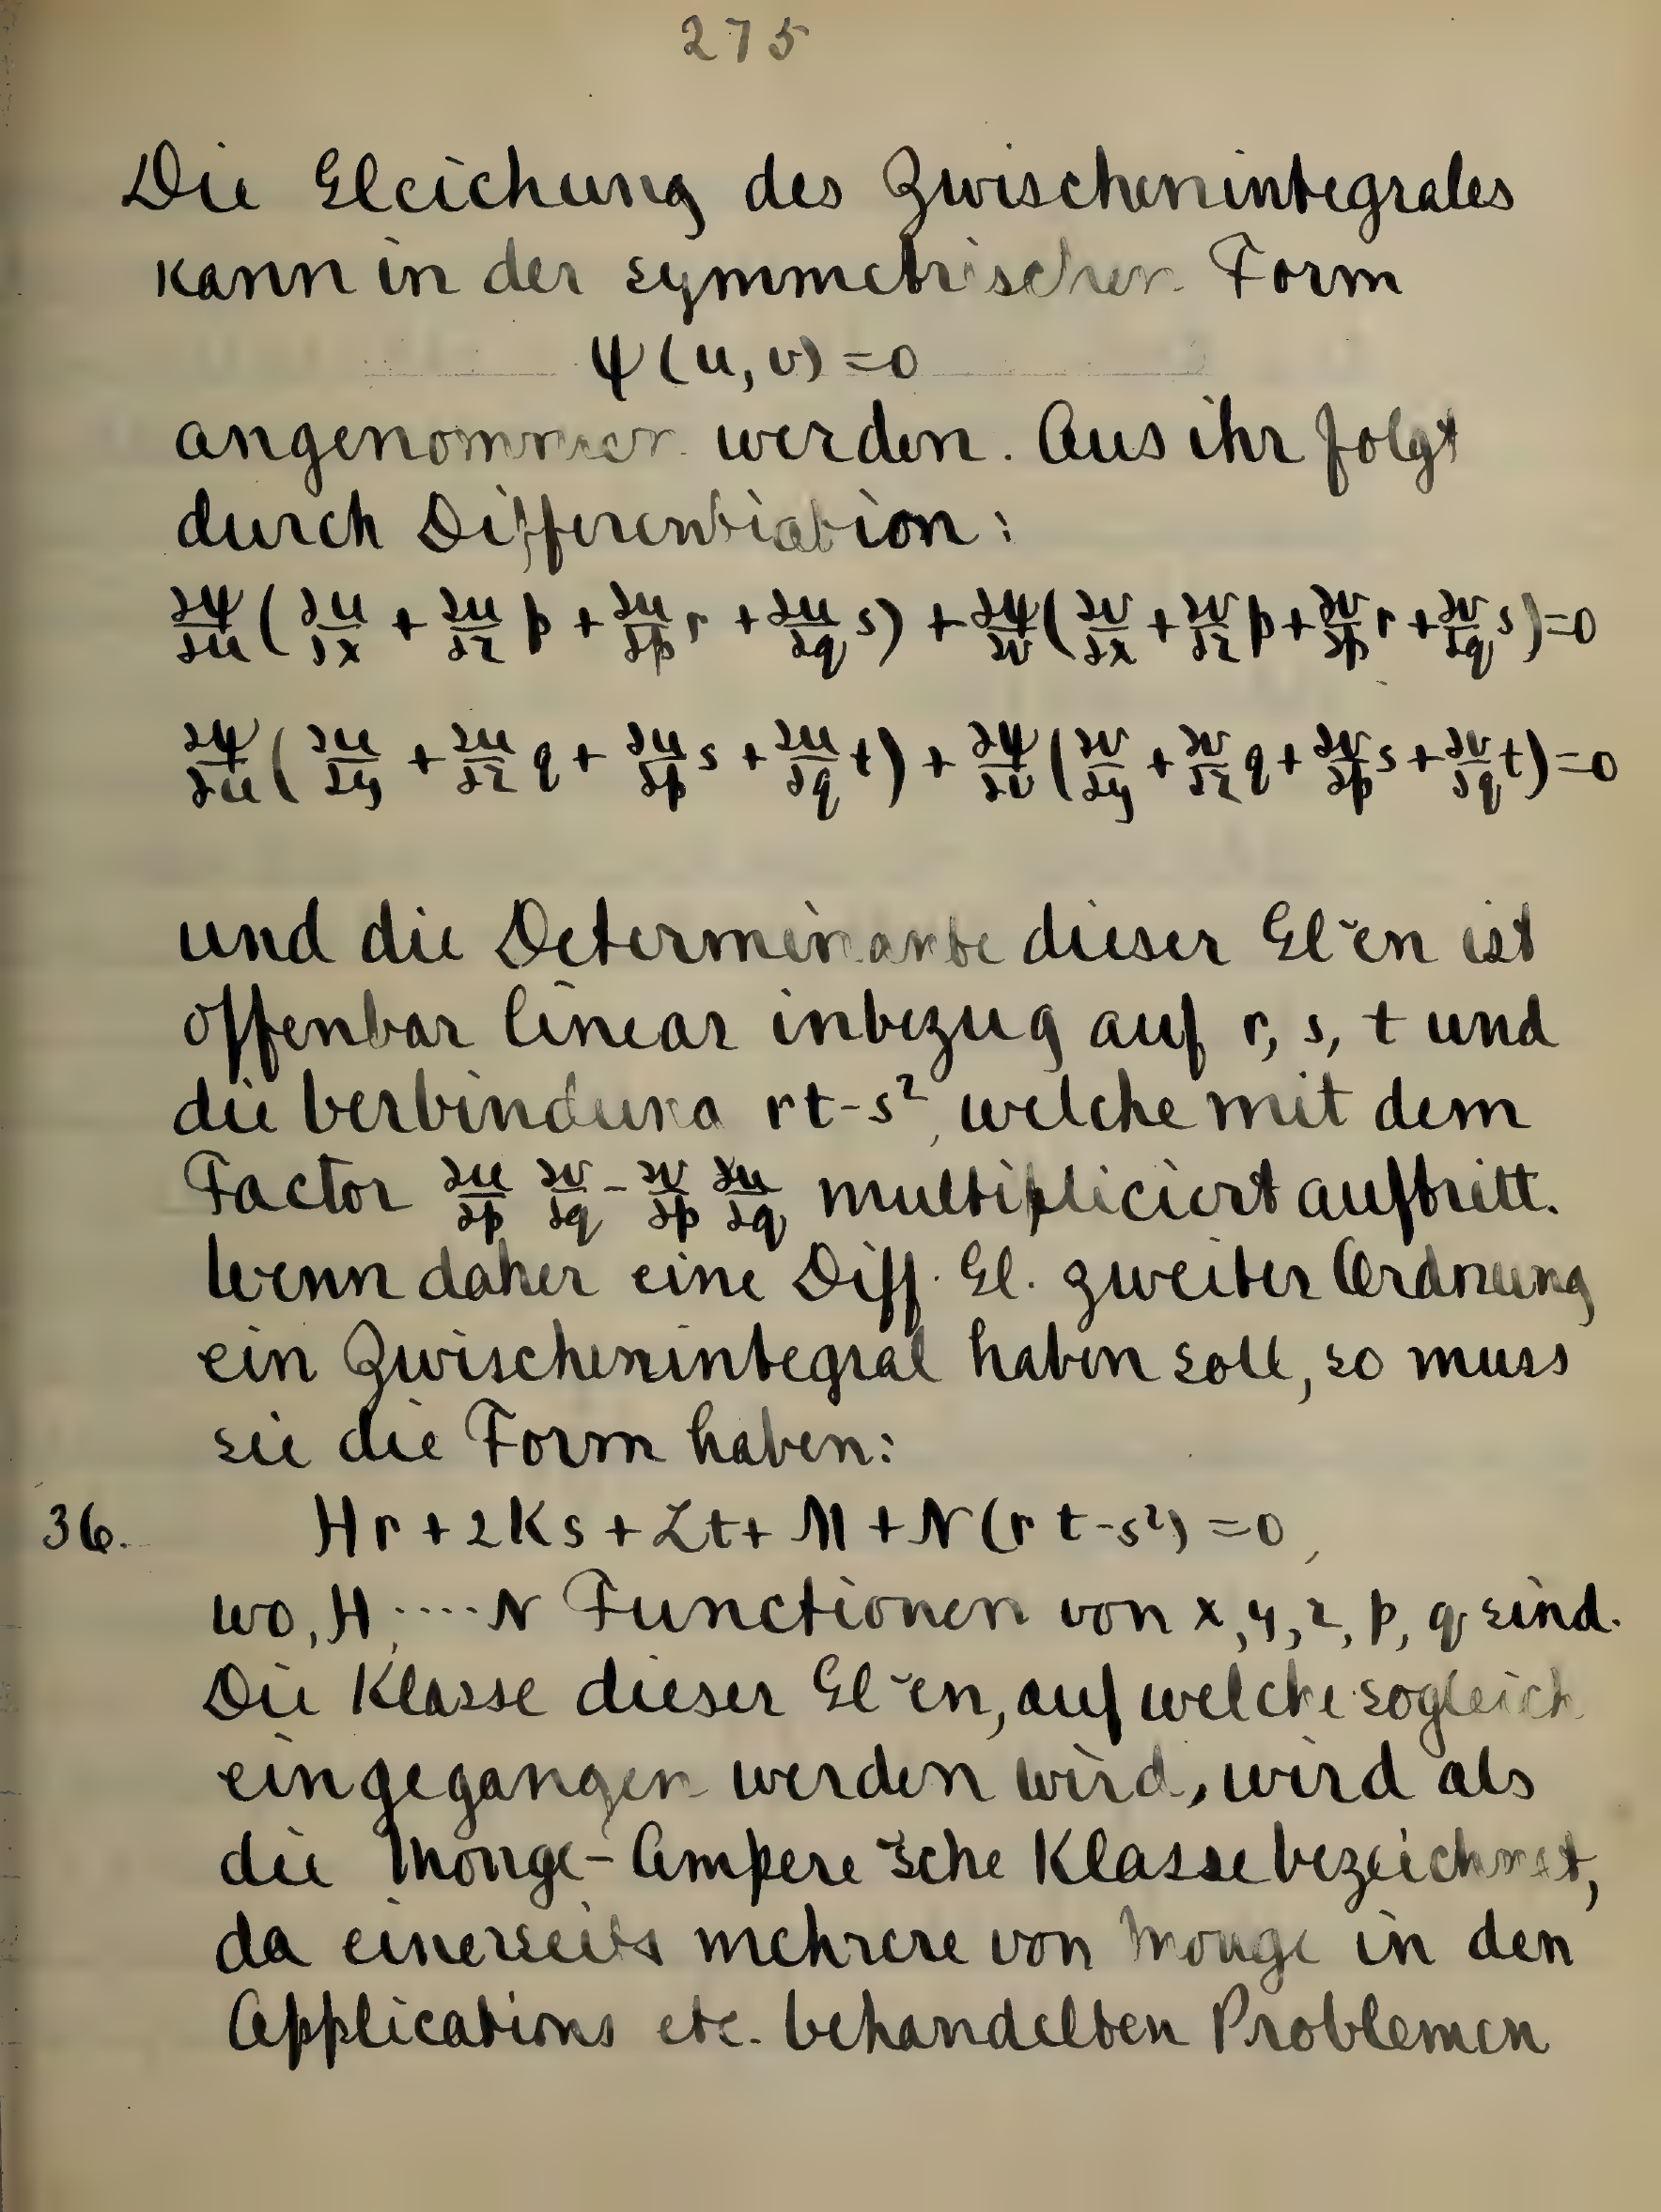 275
Die Gleichung des Zwischenintegrales
kann in der symmetrischen Form
ψ(u, v) = 0
angenommen werden. Aus ihr folgt
durch Differentiation:
∂ψ/∂u (∂u/∂x + ∂u/∂z p + ∂u/∂p r + ∂u/∂q s) + ∂ψ/∂v (∂v/∂x + ∂v/∂z p + ∂v/∂p r + ∂v/∂q s) = 0
∂ψ/∂u (∂u/∂y + ∂u/∂z q + ∂u/∂p s + ∂u/∂q t) + ∂ψ/∂v (∂v/∂y + ∂v/∂z q + ∂v/∂p s + ∂v/∂q t) = 0
und die Determinante dieser Gl~en ist
offenbar linear inbezug auf r, s, t und
die Verbindung rt-s², welche mit dem
Factor ∂u/∂p ∂v/∂q - ∂v/∂p ∂u/∂q multipliciert auftritt.
Wenn daher eine Diff. Gl. zweiter Ordnung
ein Zwischenintegral haben soll, so muss
sie die Form haben:
36. Hr + 2Ks + Lt + M + N(rt-s²) = 0,
wo, H, .... N Functionen von x, y, z, p, q sind.
Die Klasse dieser Gl~en, auf welche sogleich
eingegangen werden wird, wird als
die Monge-Ampere'sche Klasse bezeichnet,
da einerseits mehrere von Monge in den
Applications etc. behandelten Problemen